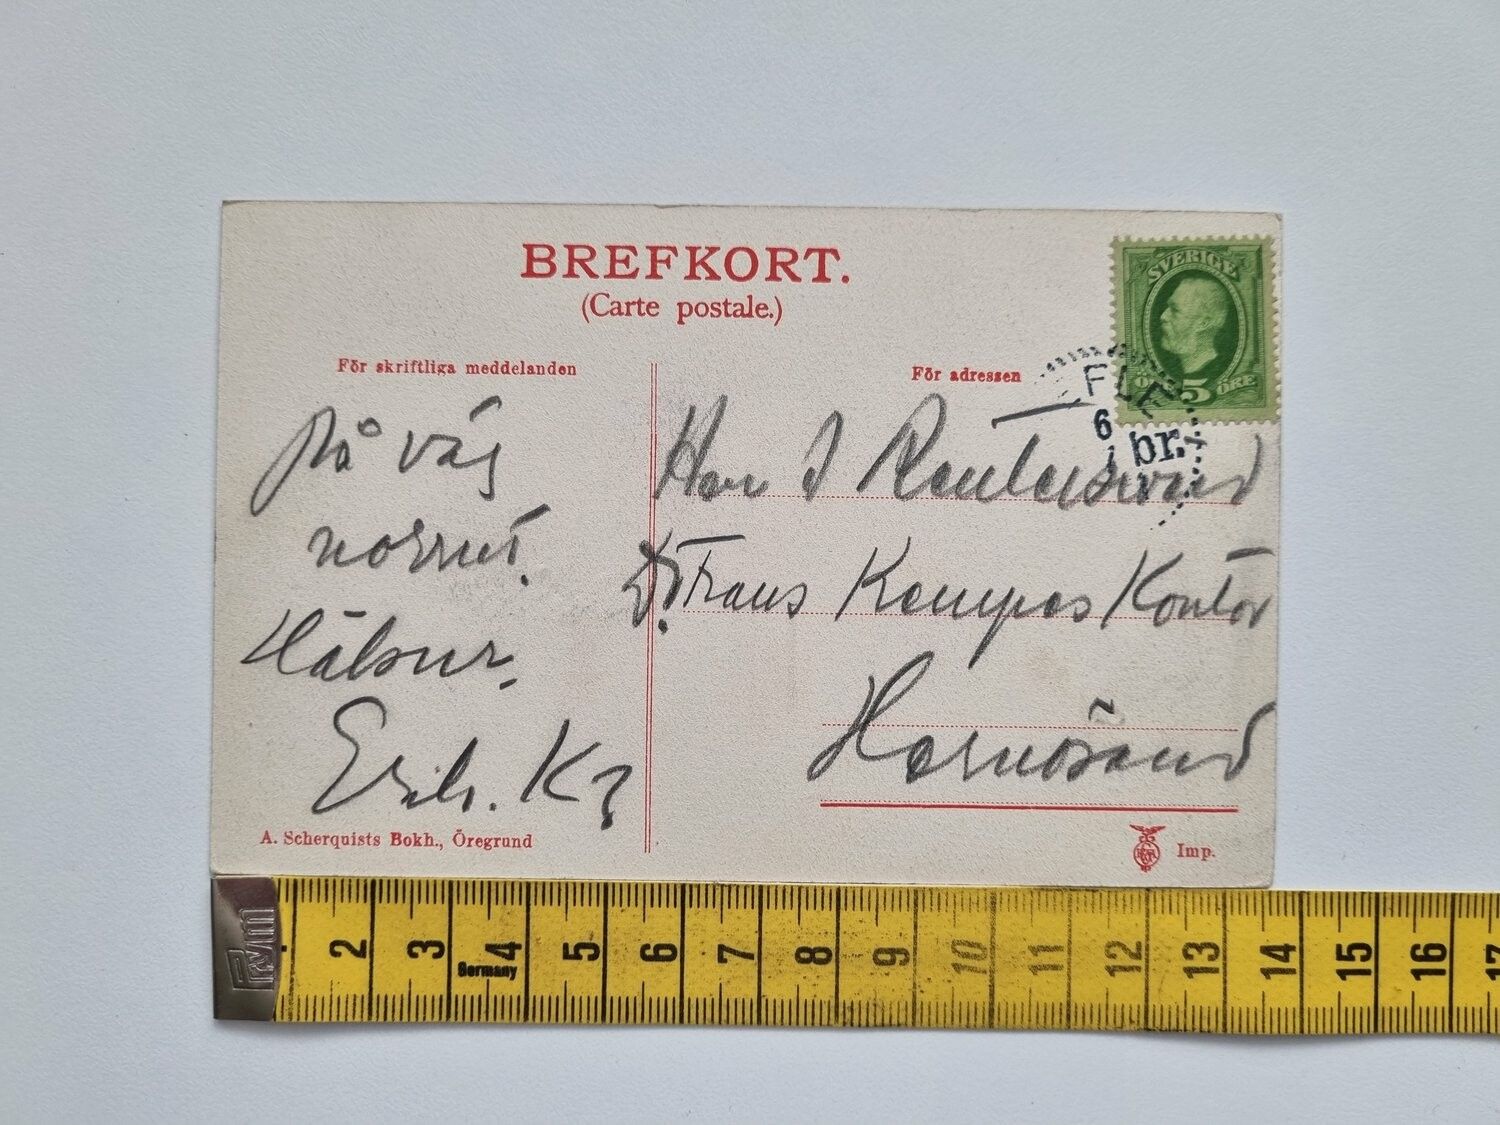 BREFKORT.
(Carte postale.)
För skriftliga meddelanden
För adressen
SVERIGE
5 ÖRE
FLE
6
br.
På väg
norrut.
Hälsn.
Herr J Reuterswärd
Dr Frans Kempes Kontor
Hernösand
A. Scherquists Bokh., Öregrund
Imp.
PRYM
Germany
2 3 4 5 6 7 8 9 10 11 12 13 14 15 16 17